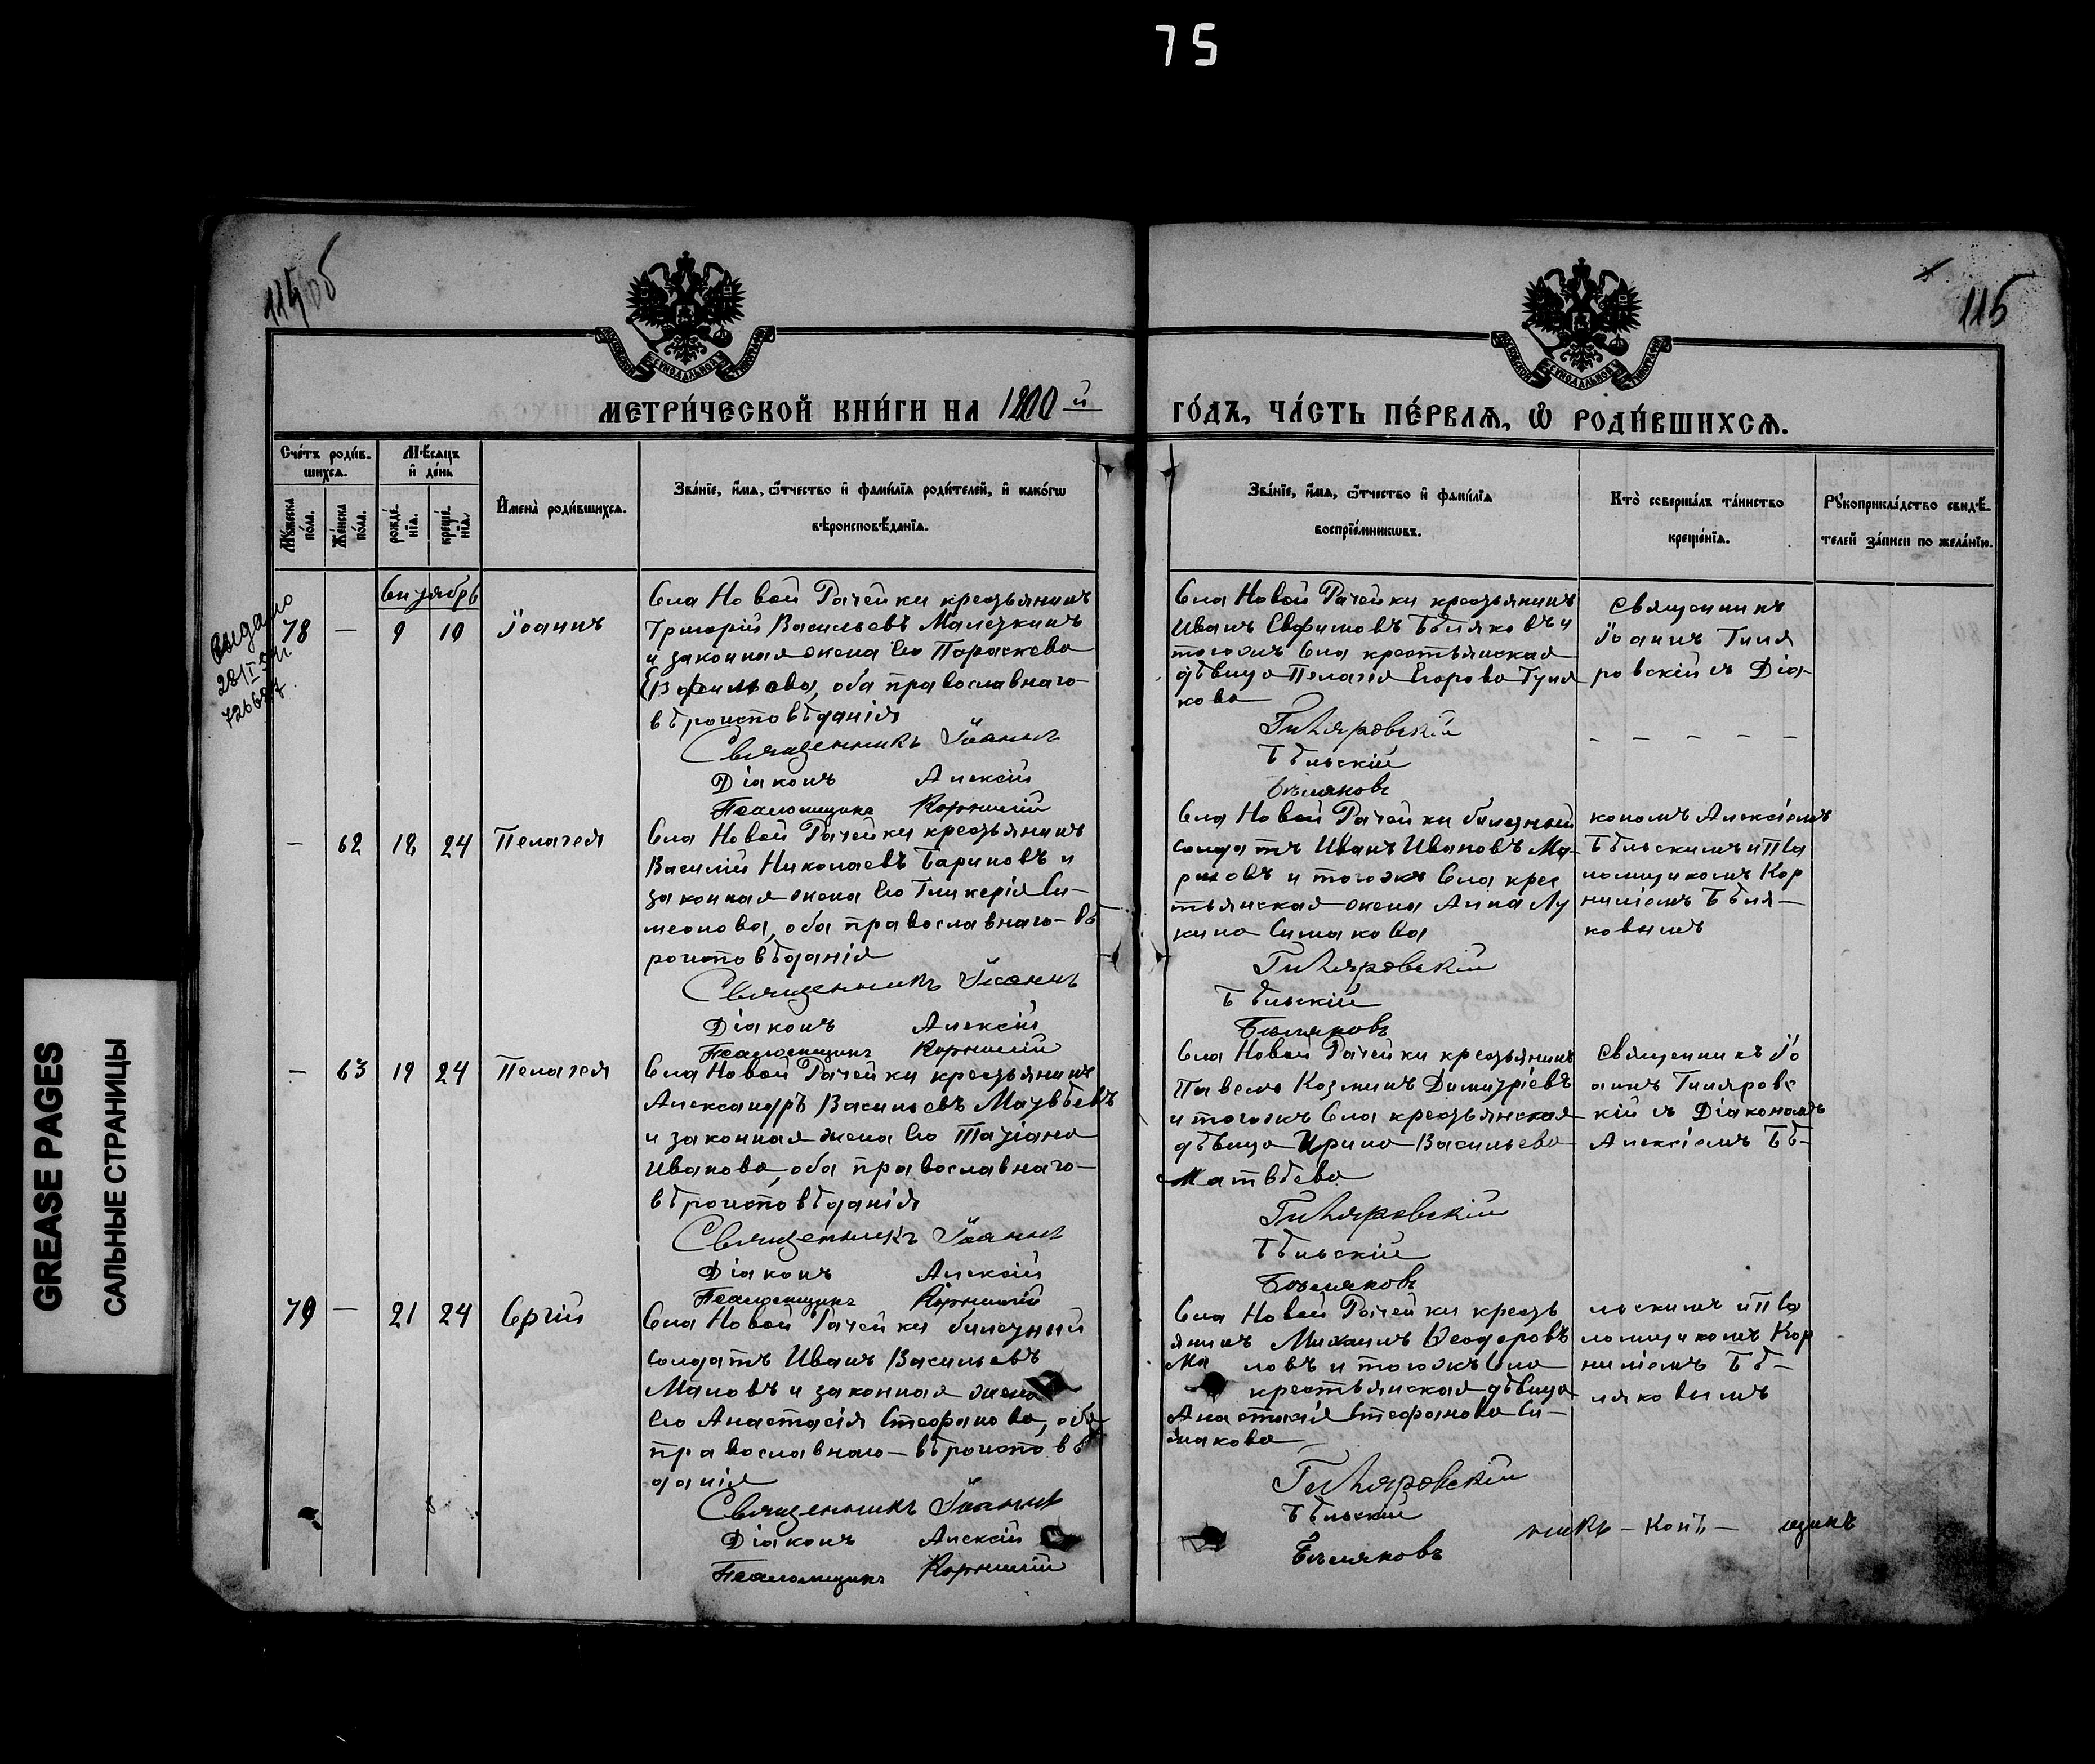 75
115об
115
МЕТРИ́ЧЕСКОЙ КНИ́ГИ НА 1900 й ГО́ДЪ, ЧА́СТЬ ПЕ́РВАѦ, Ѡ҆ РОДИ́ВШИХСѦ.
Сче́тъ роди́в-
шихсѧ.
Мꙋ́жеска по́ла.
Же́нска по́ла.
Мѣ́сѧцъ
и҆ де́нь
рожде́-
нїѧ.
креще́-
нїѧ.
И҆мена̀ роди́вшихсѧ.
Зва́нїе, и҆́мѧ, ѻ҆́тчество и҆ фами́лїѧ роди́телей, и҆ како́гѡ
вѣроисповѣ́данїѧ.
Зва́нїе, и҆́мѧ, ѻ҆́тчество и҆ фами́лїѧ
воспрїе́мникѡвъ.
Кто̀ соверша́лъ та́инство
креще́нїѧ.
Рꙋкоприкла́дство свидѣ́-
телей за́писи по жела́нїю.
выдано
Сентябрь
78 — 9 10 Іоаннъ
Села Новой Рачейки крестьянинъ
Григорій Васильевъ Малезкинъ
и законная жена его Параскева
Евфимьева, оба православнаго
вѣроисповѣданія
Священникъ Іоаннъ
Діаконъ Алексій
Псаломщикъ Корнилій
Села Новой Рачейки крестьянинъ
Иванъ Евфимовъ Бѣляковъ и
тогожъ Села крестьянская
дѣвица Пелагія Егорова Гуля
кова
Гиляровскій
Бѣльскій
Бѣляковъ
Священникъ
Іоаннъ Гиля
ровскій съ Діа-
— — — — —
— 62 18 24 Пелагея
Села Новой Рачейки крестьянинъ
Василій Николаевъ Бариновъ и
законная жена его Гликерія Си-
меонова, оба православнаго вѣ
роисповѣданія
Священникъ Іоаннъ
Діаконъ Алексій
Псаломщикъ Корнилій
Села Новой Рачейки билетный
солдатъ Иванъ Ивановъ Ма-
ркловъ и тогожъ Села крес
тьянская жена Анна Лу
кина Симакова
Гиляровскій
Бѣльскій
Бѣляковъ
кономъ Алексіемъ
Бѣльскимъ и Пса
ломщикомъ Кор
ниліемъ Бѣля-
ковымъ
— 63 19 24 Пелагея
Села Новой Рачейки крестьянинъ
Александръ Васильевъ Матвѣевъ
и законная жена его Татіана
Иванова, оба православнаго
вѣроисповѣданія
Священникъ Іоаннъ
Діаконъ Алексій
Псаломщикъ Корнилій
Села Новой Рачейки крестьянинъ
Павелъ Козминъ Димитріевъ
и тогожъ Села крестьянская
дѣвица Ирина Васильева
Матвѣева
Гиляровскій
Бѣльскій
Бѣляковъ
Священникъ Іо
аннъ Гиляровс
кій съ Діакономъ
Алексіемъ Бѣ-
79 — 21 24 Сергій
Села Новой Рачейки билетный
солдатъ Иванъ Васильевъ
Маловъ и законная жена
его Анастасія Стефанова, оба
православнаго вѣроисповѣ
данія
Священникъ Іоаннъ
Діаконъ Алексій
Псаломщикъ Корнилій
Села Новой Рачейки кресть
янинъ Михаилъ Ѳеодоровъ
Ма ловъ и тогожъ Села
крестьянская дѣвица
Анастасія Стефанова Си-
макова
Гиляровскій
Бѣльскій
Бѣляковъ
льскимъ и Пса
ломщикомъ Кор
ниліемъ Бѣ-
ляковымъ
GREASE PAGES
САЛЬНЫЕ СТРАНИЦЫ